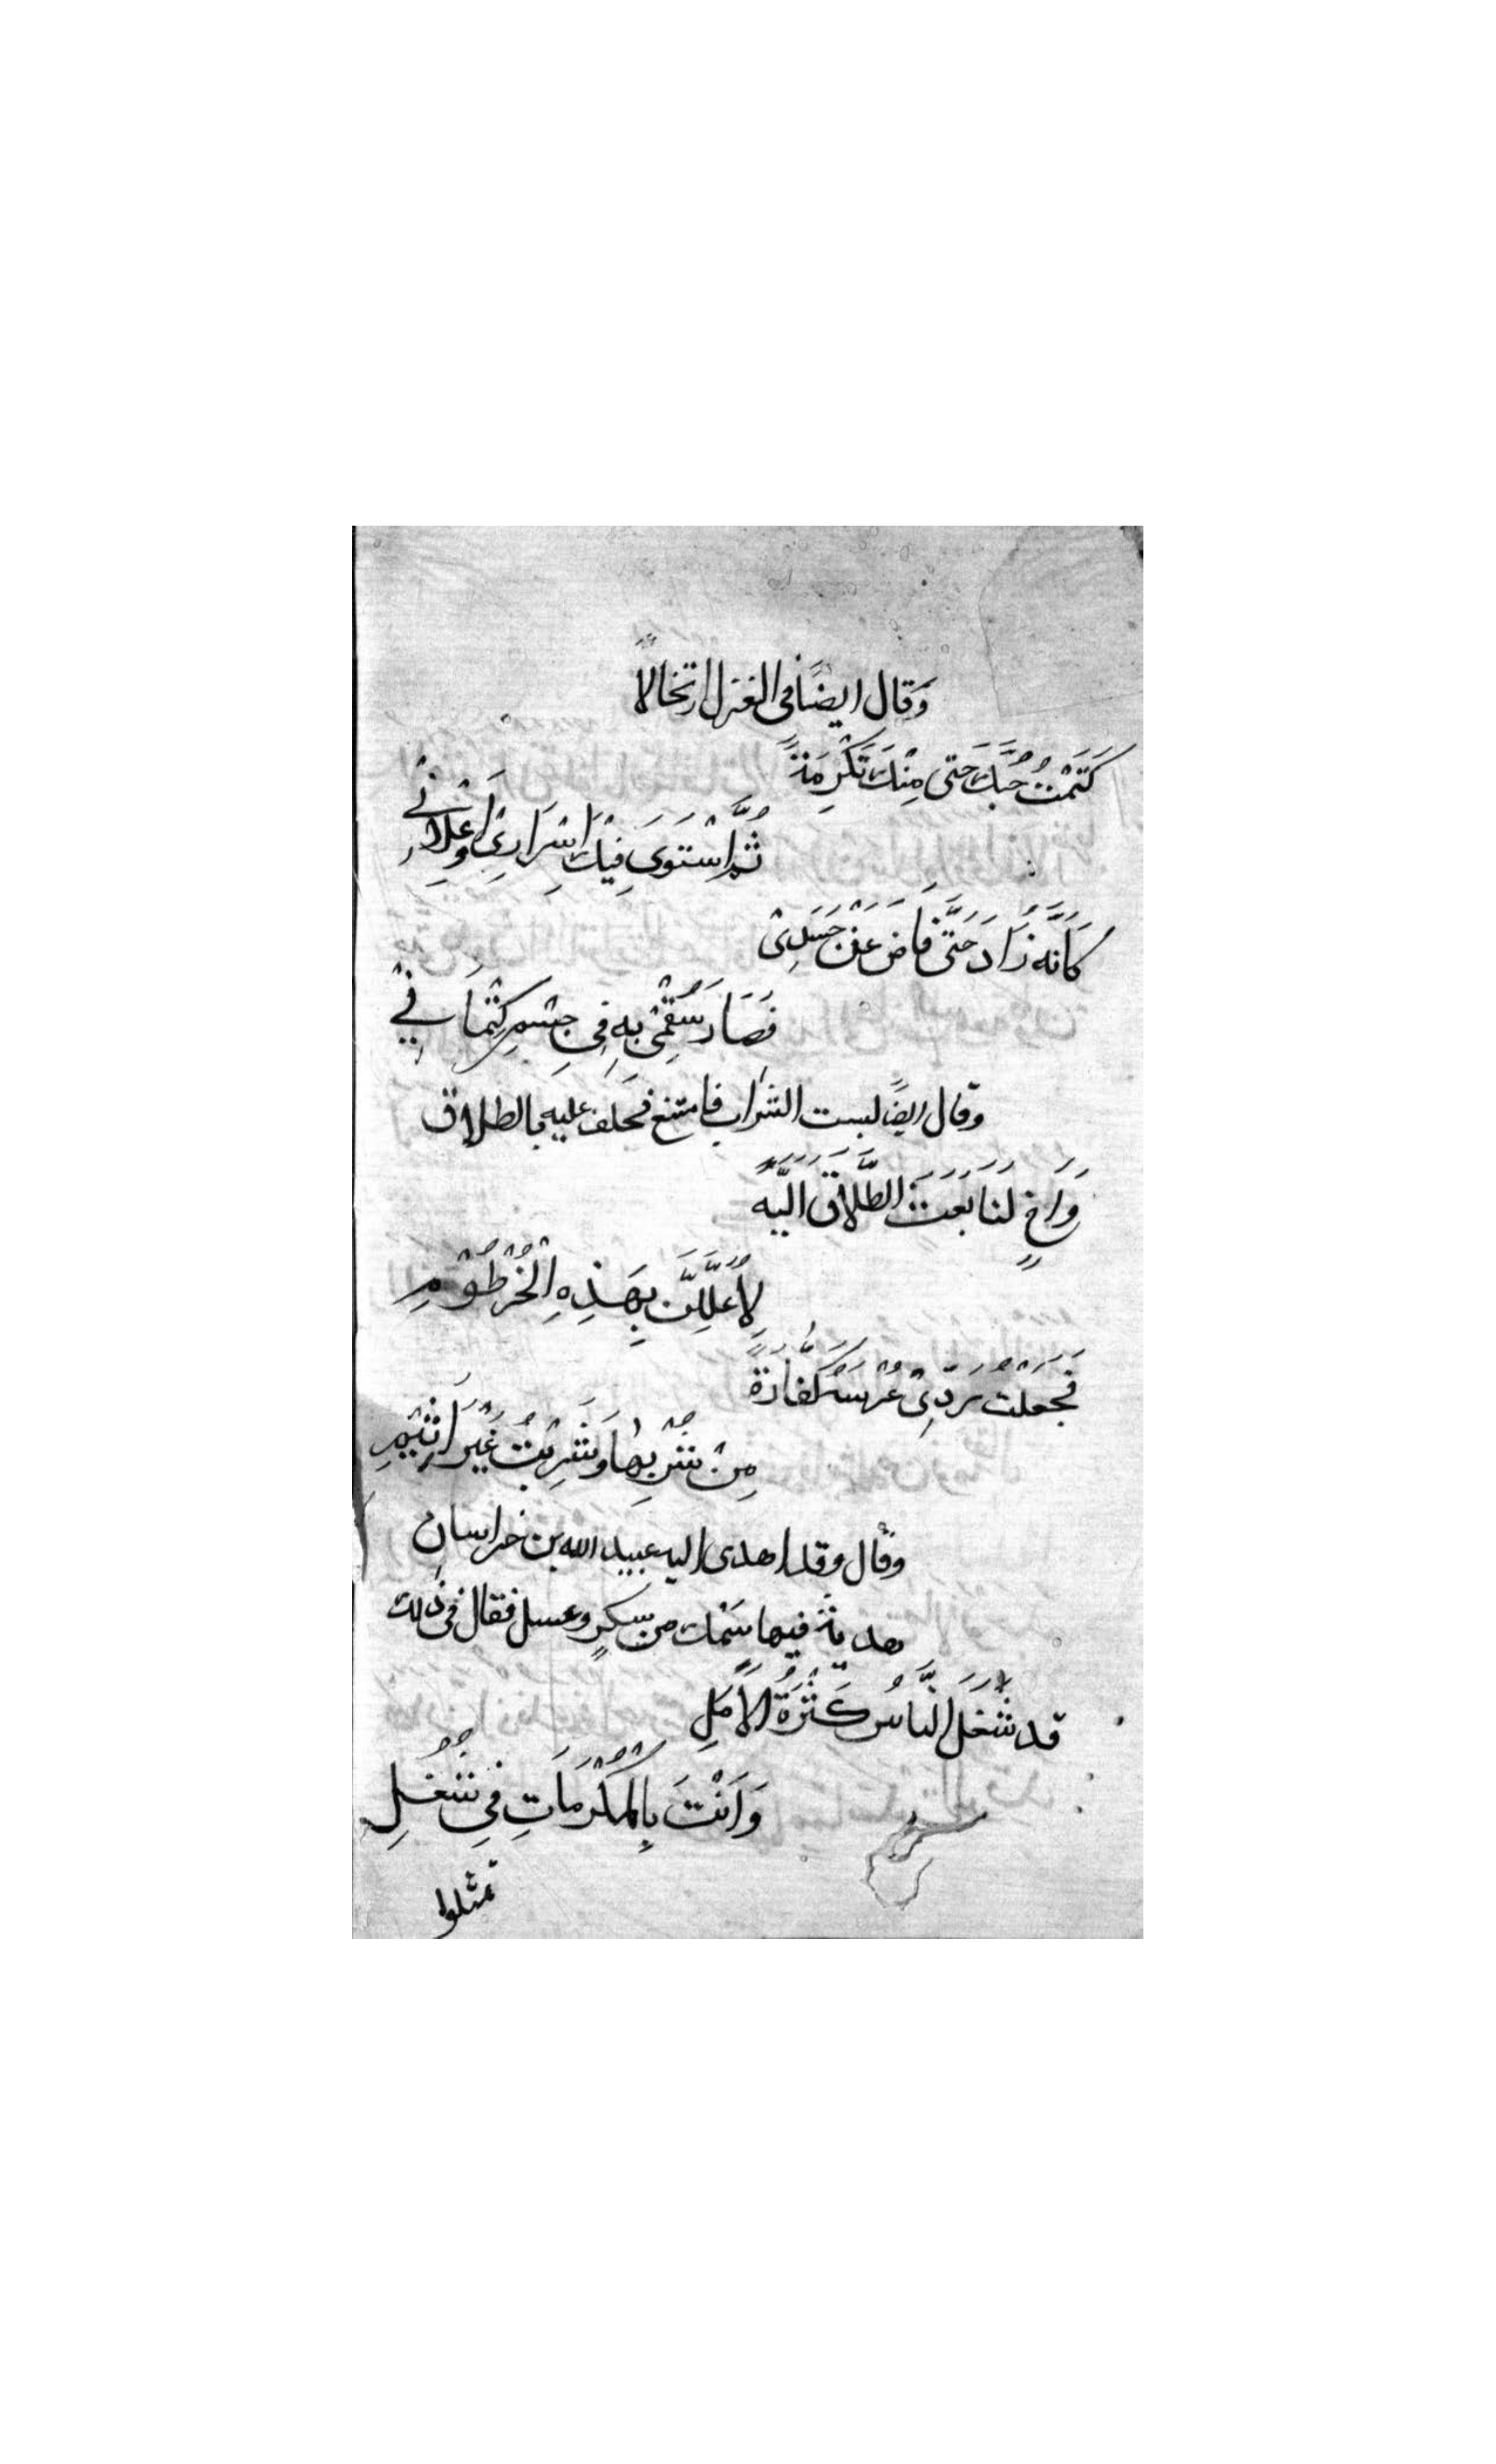 وَقال ايضًا في الغزل ارتجالاً
كَتَمْتُ حُبَّكَ حَتى مِنْكَ تَكْرِمَةً
ثُمَّ اسْتَوَى فِيكَ اِسْرَارِيْ وَاِعْلَانِيْ
كَاَنَّهُ زَادَ حَتَّى فَاضَ عَنْ جَسَدِيْ
فَصَارَ سُقْمِيْ بِهِ فِي جِسْمِ كِتْمَانِيْ
وقال ايضًا الشراب فامتنع فحلف عليه بالطلاق
وَاَخٍ لَنا بَعَثَ الطَّلَاقَ اَلِيَّةً
لَاُعَلِّلَنَّ بِهَذِهِ الْخُرْطُوْمِ
فَجَعَلْتُ رَدِّيْ عِرْسَهُ كَفَّارَةً
مِنْ شُرْبِهَا وَشَرِبْتُ غَيْرَ اَثِيْمِ
وقال وقد اهدى اليه عبيد الله بن خراسان
هديةً فيها سَمَك من سكرٍ وعسل فقال في ذلك
قد شَغَلَ النَّاسَ كَثْرَةُ الْاَمَلِ
وَاَنْتَ بِالْمَكْرُمَاتِ فِي شُغُلِ
تمثلوا